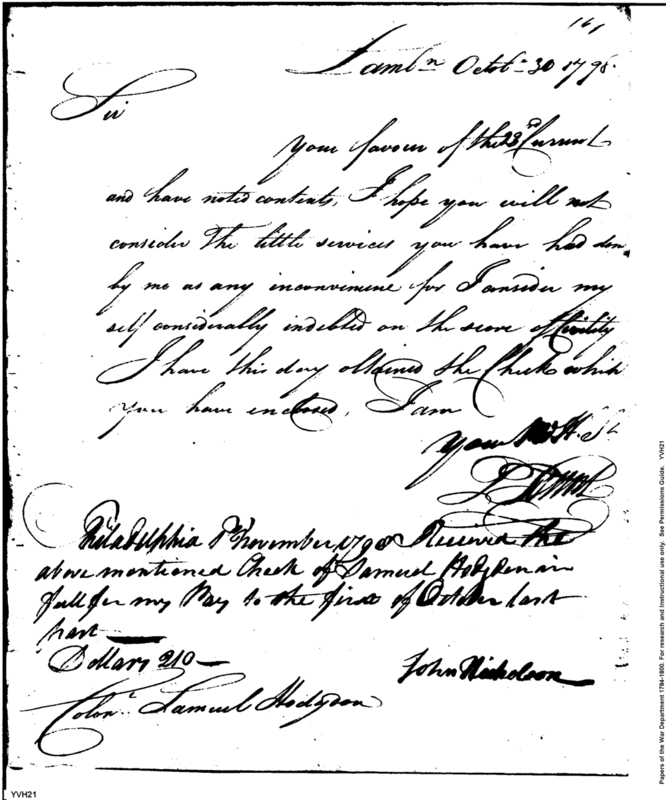 161
Lambn Octobr 30 1798.
Sir
Your favour of the 23rd Current
and have noted contents, I hope you will not
consider The little services you have had done
by me as any inconvinience for I consider my
self considerably indebted on the score of Civility
I have this day obtained the Check which
you have enclosed, I am
Your St
Philadelphia November 1798 Received the
above mentioned Check of Samuel Hodgdon in
full for my Pay to the first of October last
past
Dollars 210
John Nicholson
Colonl Samuel Hodgdon
Papers of the War Department 1784-1800. For research and instructional use only. See Permissions Guide. YVH21
YVH21